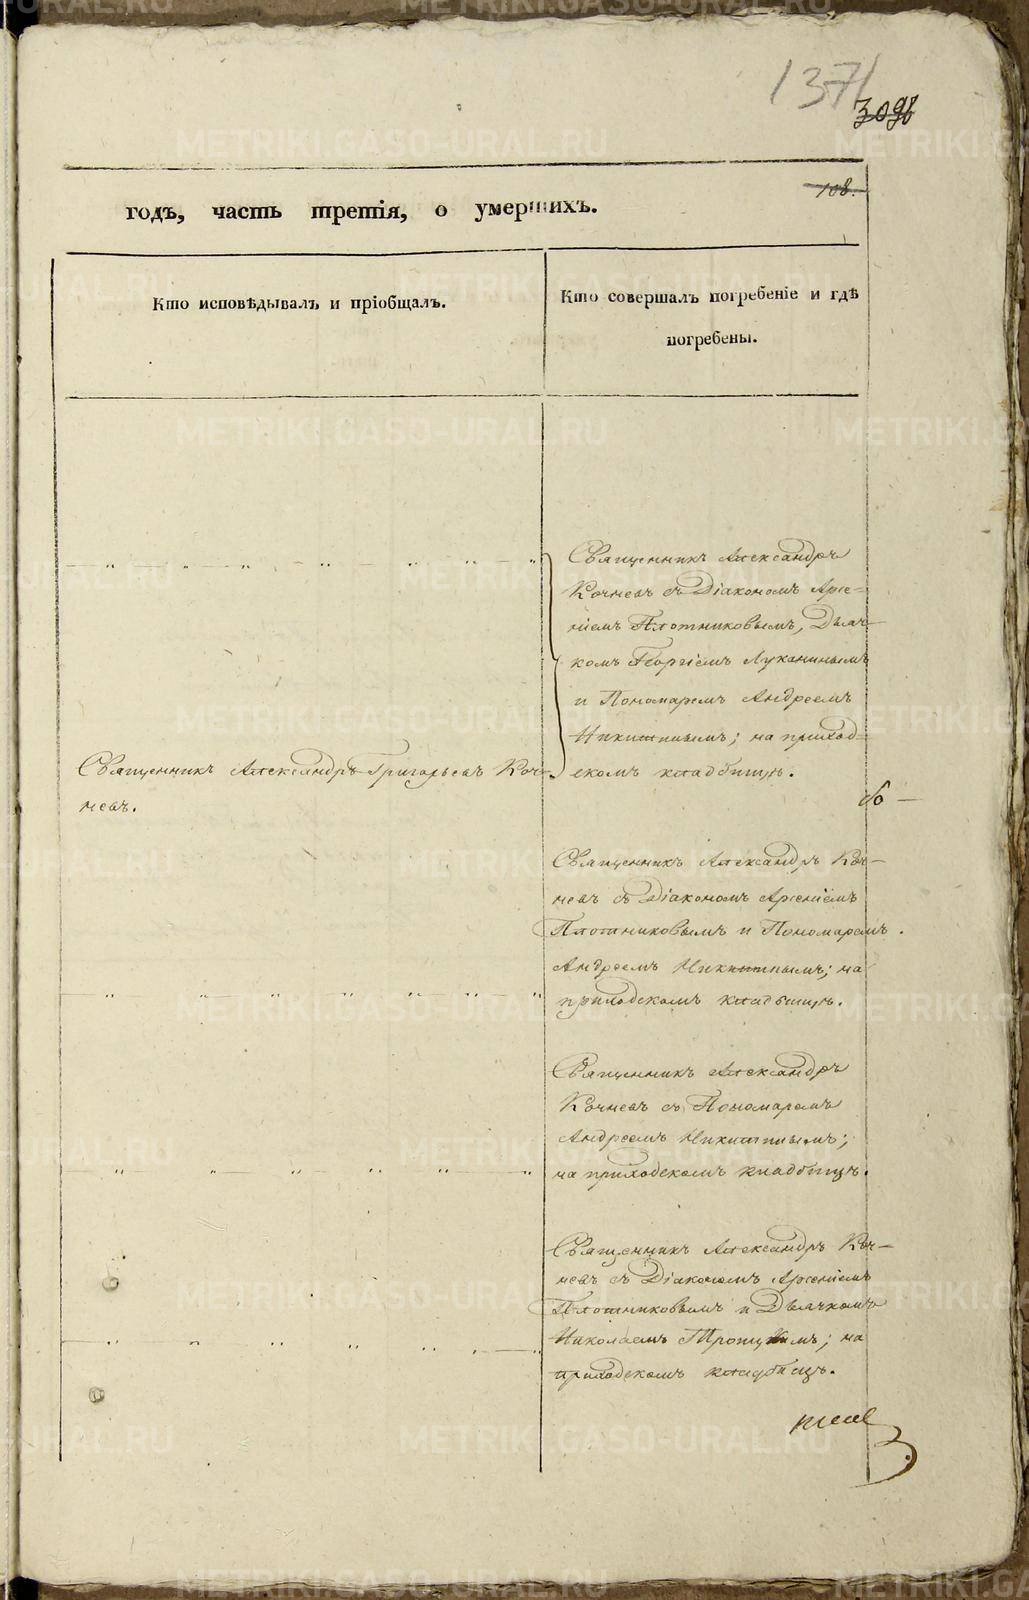 1371
3096
108.
годъ, часть третія, о умершихъ.
Кто исповѣдывалъ и пріобщалъ.
Кто совершалъ погребеніе и гдѣ
погребены.
Священникъ Александръ
Кочневъ съ Діакономъ Арсе-
ніемъ Плотниковымъ, Дьяч-
комъ Георгіемъ Луканинымъ
и Пономаремъ Андреемъ
Никитинымъ; на приход-
скомъ кладбищѣ.
Священникъ Александръ Григорьевъ Коч-
невъ.
Священникъ Александръ Коч-
невъ съ Діакономъ Арсеніемъ
Плотниковымъ и Пономаремъ
Андреемъ Никитинымъ; на
приходскомъ кладбищѣ.
Священникъ Александръ
Кочневъ съ Пономаремъ
Андреемъ Никитинымъ;
на приходскомъ кладбищѣ.
Священникъ Александръ Коч-
невъ съ Діакономъ Арсеніемъ
Плотниковымъ и Дьячкомъ
Николаемъ; на
приходскомъ кладбищѣ.
METRIKI.GASO-URAL.RU